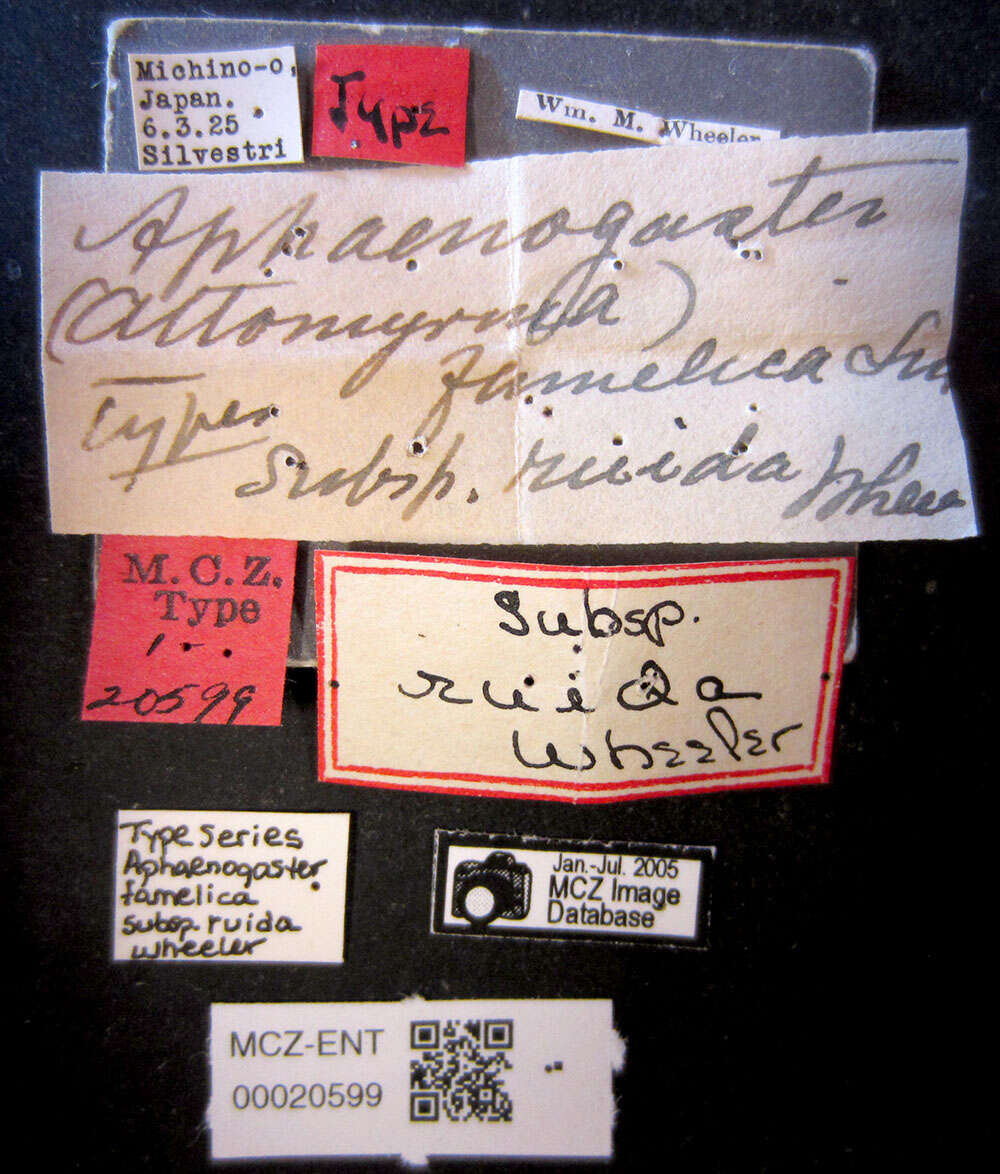 Michino-o,
Japan.
6.3.25
Silvestri
Type
Wm. M. Wheeler
Aphaenogaster
(Attomyrma)
famelica Sm
Types
Subsp. ruida Wheel
M.C.Z.
Type
1-
20599
Subsp.
ruida
Wheeler
Type Series
Aphaenogaster
famelica
subsp. ruida
wheeler
Jan.-Jul. 2005
MCZ Image
Database
MCZ-ENT
00020599